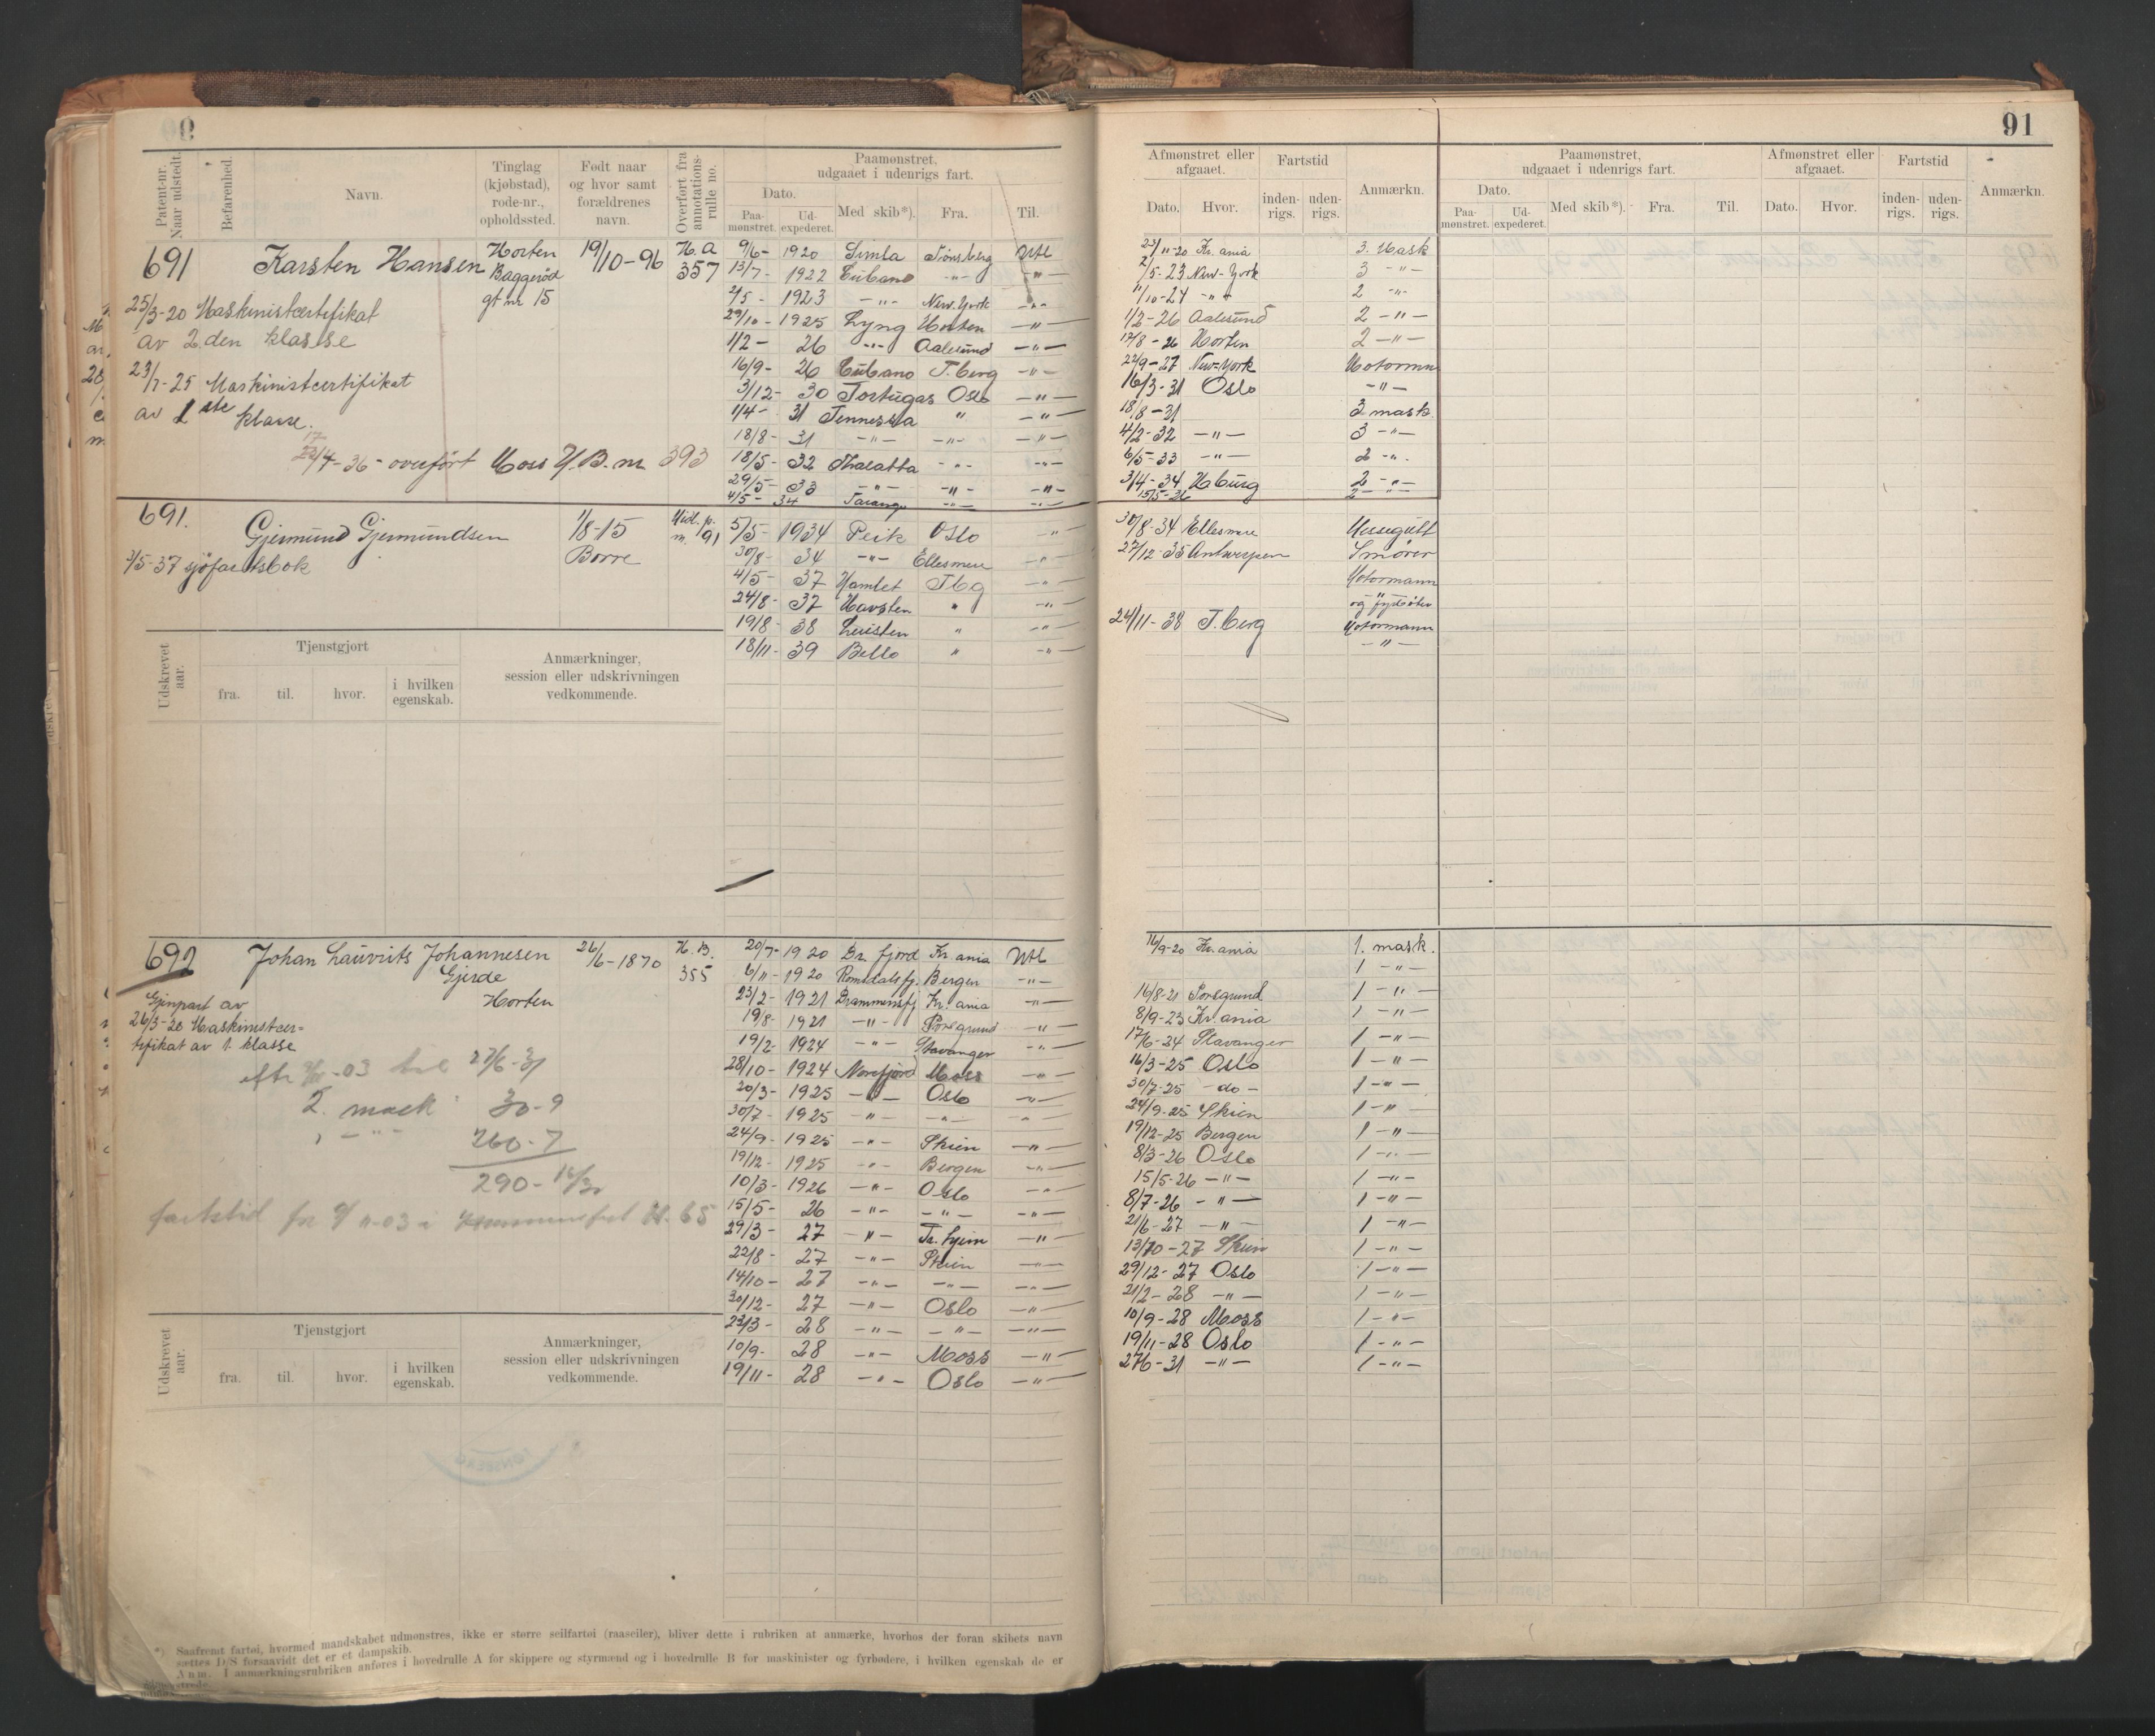 91
Patent-nr. Naar udstedt.
Befarenhed.
Navn.
Tinglag (kjøbstad), rode-nr., opholdssted.
Født naar og hvor samt forældrenes navn.
Overført fra annotations-rulle no.
Paamønstret, udgaaet i udenrigs fart.
Dato.
Paa-mønstret. Ud-expederet. Med skib*). Fra. Til.
Afmønstret eller afgaaet.
Dato. Hvor.
Fartstid
inden-rigs. uden-rigs.
Anmærkn.
Paamønstret, udgaaet i udenrigs fart.
Dato.
Paa-mønstret. Ud-expederet. Med skib*). Fra. Til.
Afmønstret eller afgaaet.
Dato. Hvor.
Fartstid
inden-rigs. uden-rigs.
Anmærkn.
691 Karsten Hansen Horten Baggerød gt nr 15 19/10-96 H.A 357
25/3-20 Maskinistcertifikat
av 2.den klasse
23/7-25 Maskinistcertifikat
av 1ste klasse.
/4-36- overført Moss H.B. nr 393
9/6- 1920 Simla Tønsberg Utl 23/11-20 Kr.ania 3. Mask
13/7- 1922 Cubano -"- -"- 2/5-23 New-York 3 -"-
2/5- 1923 -"- New York -"- 11/10-24 -"- 2 -"-
29/10- 1925 Lyng Horten -"- 1/2-26 Aalesund 2 -"-
1/2- 26 -"- Aalesund -"- 17/8-26 Horten 2 -"-
16/9- 26 Cubano T.berg -"- 22/9-27 New-York Motormn
3/12- 30 Tortugas Oslo -"- 16/3-31 Oslo -"-
1/4- 31 Tennessa " -"- 18/8-31 3 mask.
18/8- 31 -"- -"- -"- 4/2-32 -"- 3 -"-
18/5- 32 Thalatta -"- -"- 6/5-33 -"- 2 -"-
29/5- 33 -"- -"- -"- 3/4-34 Hburg 2 -"-
4/5- 34 -"- -"- 15/5-36 2 -"-
691. Gjermund Gjermundsen 1/8-15 Borre Midl. p. m. 191
3/5-37 sjøfartsbok
5/5- 1934 Peik Oslo -"- 30/8-34 Ellesmere Messegutt
30/8- 34 -"- Ellesmere -"- 27/12-35 Antwerpen Smører
4/5- 37 Hamlet Tbg -"- Motormann
24/8- 37 Havsten " -"- -"-
19/8- 38 Luisten " -"- 24/11-38 T.berg Motormann
18/11- 39 Bello " -"- -"-
Udskrevet aar.
Tjenstgjort
fra. til. hvor. i hvilken egenskab.
Anmærkninger, session eller udskrivningen vedkommende.
692 Johan Lauvrits Johannesen Gjerde Horten 26/6-1870 H.B. 355
Gjenpart av
26/3-20 Maskinistcer-
tifikat av 1. klasse
-03 til 27/6-31
2. mask 30-9
-"- 260-7
290-
fartstid
20/7- 1920 Br. fjord Kr ania Utl 16/9-20 Kr.ania 1. mask.
6/11- 1920 Romsdalsfj. Bergen -"- 1 -"-
23/2- 1921 Drammensfj. Kr. ania -"- 16/8-21 Porsgrund 1 -"-
19/8- 1921 -"- Porsgrund -"- 8/9-23 Kr.ania 1 -"-
19/2- 1924 -"- Stavanger -"- 17/6-24 Stavanger 1 -"-
28/10- 1924 Norefjord Moss -"- 16/3-25 Oslo 1 -"-
20/3- 1925 -"- Oslo -"- 30/7-25 -do- 1 -"-
30/7- 1925 -"- -"- -"- 24/9-25 Skien 1 -"-
24/9- 1925 -"- Skien -"- 19/12-25 Bergen 1 -"-
19/12- 1925 -"- Bergen -"- 8/3-26 Oslo 1 -"-
10/3- 1926 -"- Oslo -"- 15/5-26 -"- 1 -"-
15/5- 26 -"- -"- -"- 8/7-26 -"- 1 -"-
29/3- 27 -"- Tr. hjem -"- 21/6-27 -"- 1 -"-
22/8- 27 -"- Skien -"- 13/10-27 Skien 1 -"-
14/10- 27 -"- -"- -"- 29/12-27 Oslo 1 -"-
30/12- 27 -"- Oslo -"- 21/2-28 -"- 1 -"-
23/3- 28 -"- -"- -"- 10/9-28 Moss 1 -"-
10/9- 28 -"- Moss -"- 19/11-28 Oslo 1 -"-
19/11- 28 -"- Oslo -"- 276-31 -"- 1 -"-
Udskrevet aar.
Tjenstgjort
fra. til. hvor. i hvilken egenskab.
Anmærkninger, session eller udskrivningen vedkommende.
*) Saafremt fartøi, hvormed mandskabet udmønstres, ikke er større seilfartøi (raaseiler), bliver dette i rubriken at anmærke, hvorhos der foran skibets navn
sættes D/S forsaavidt det er et dampskib.
Anm. I anmærkningsrubriken anføres i hovedrulle A for skippere og styrmænd og i hovedrulle B for maskinister og fyrbødere, i hvilken egenskab de er